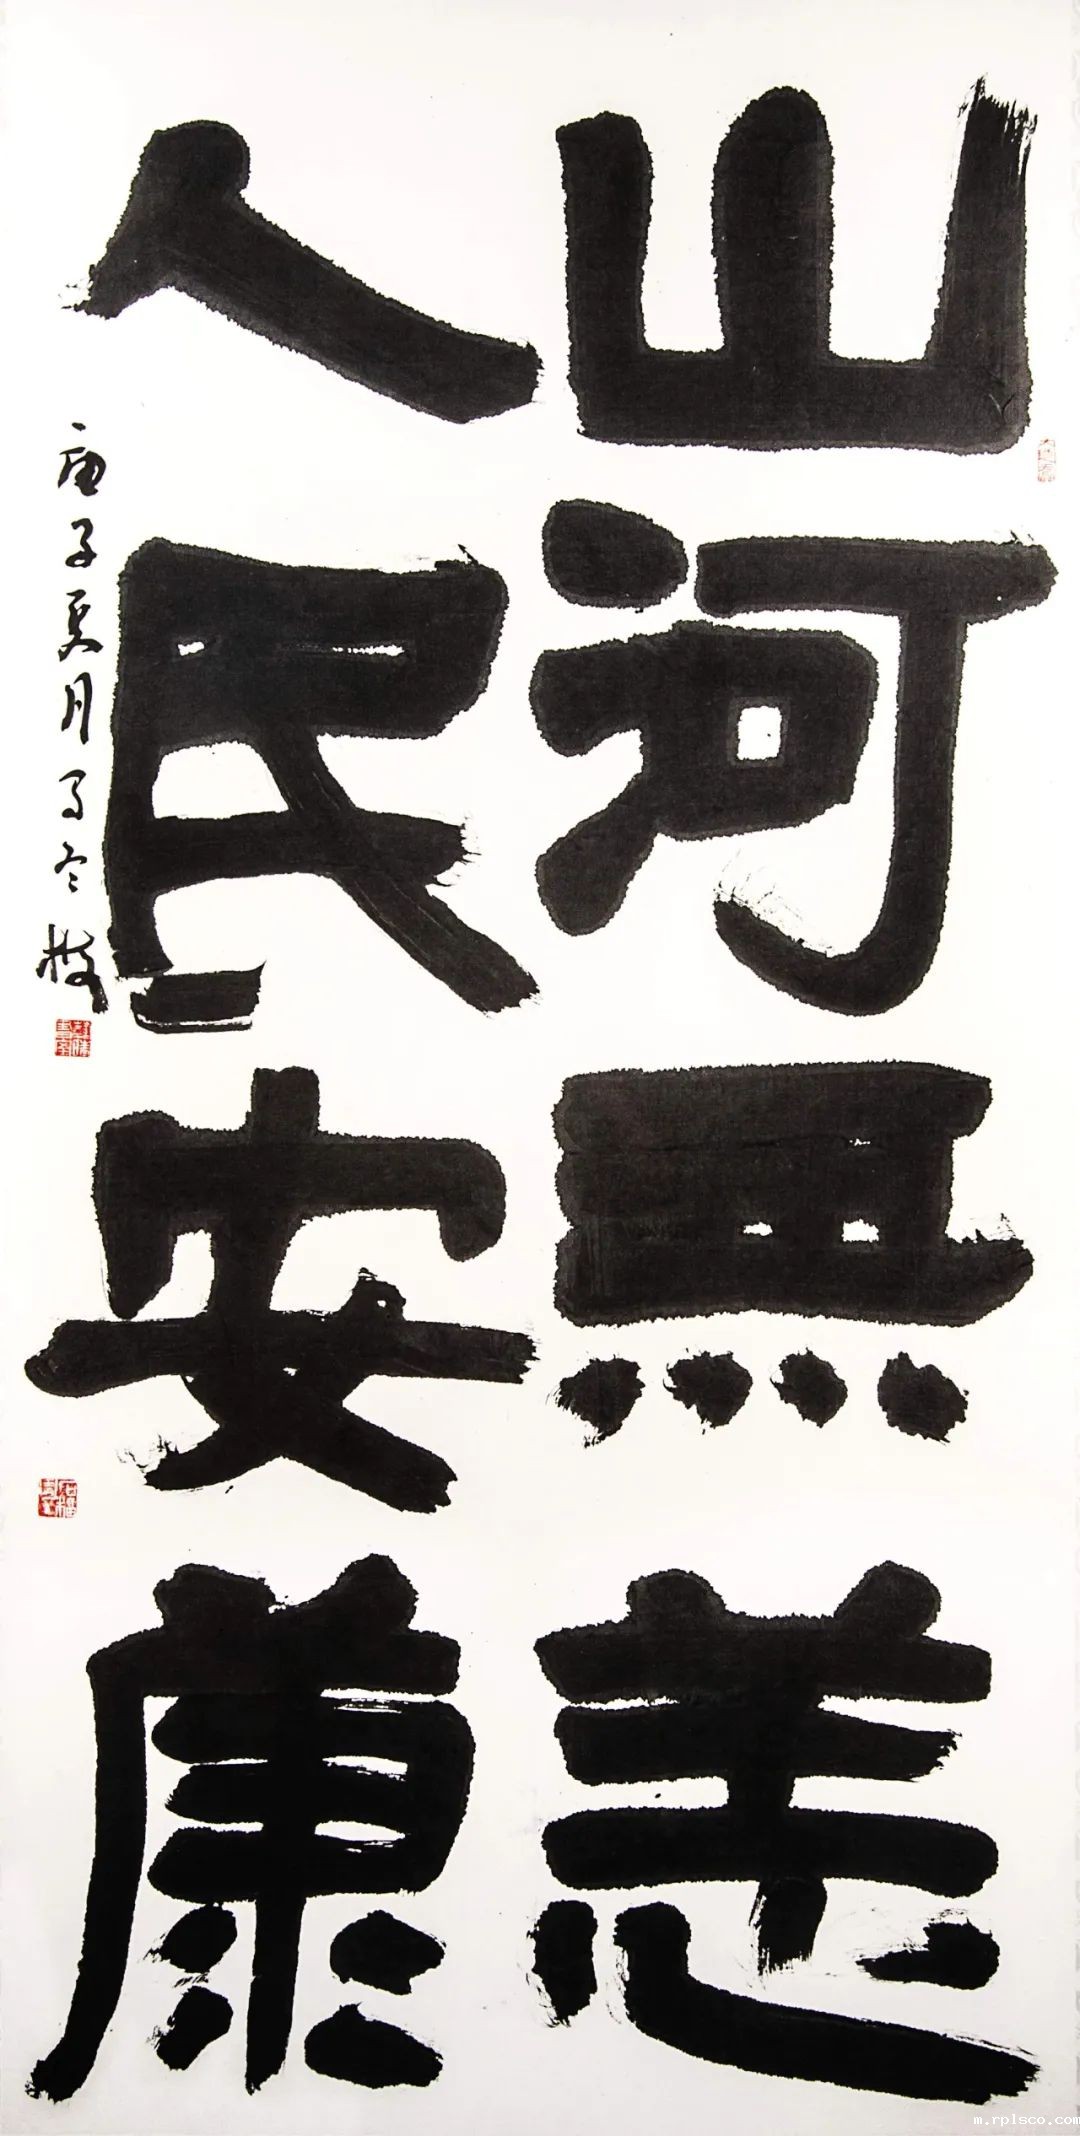 山河無恙
人民安康
庚子夏月
m.rplsco.com